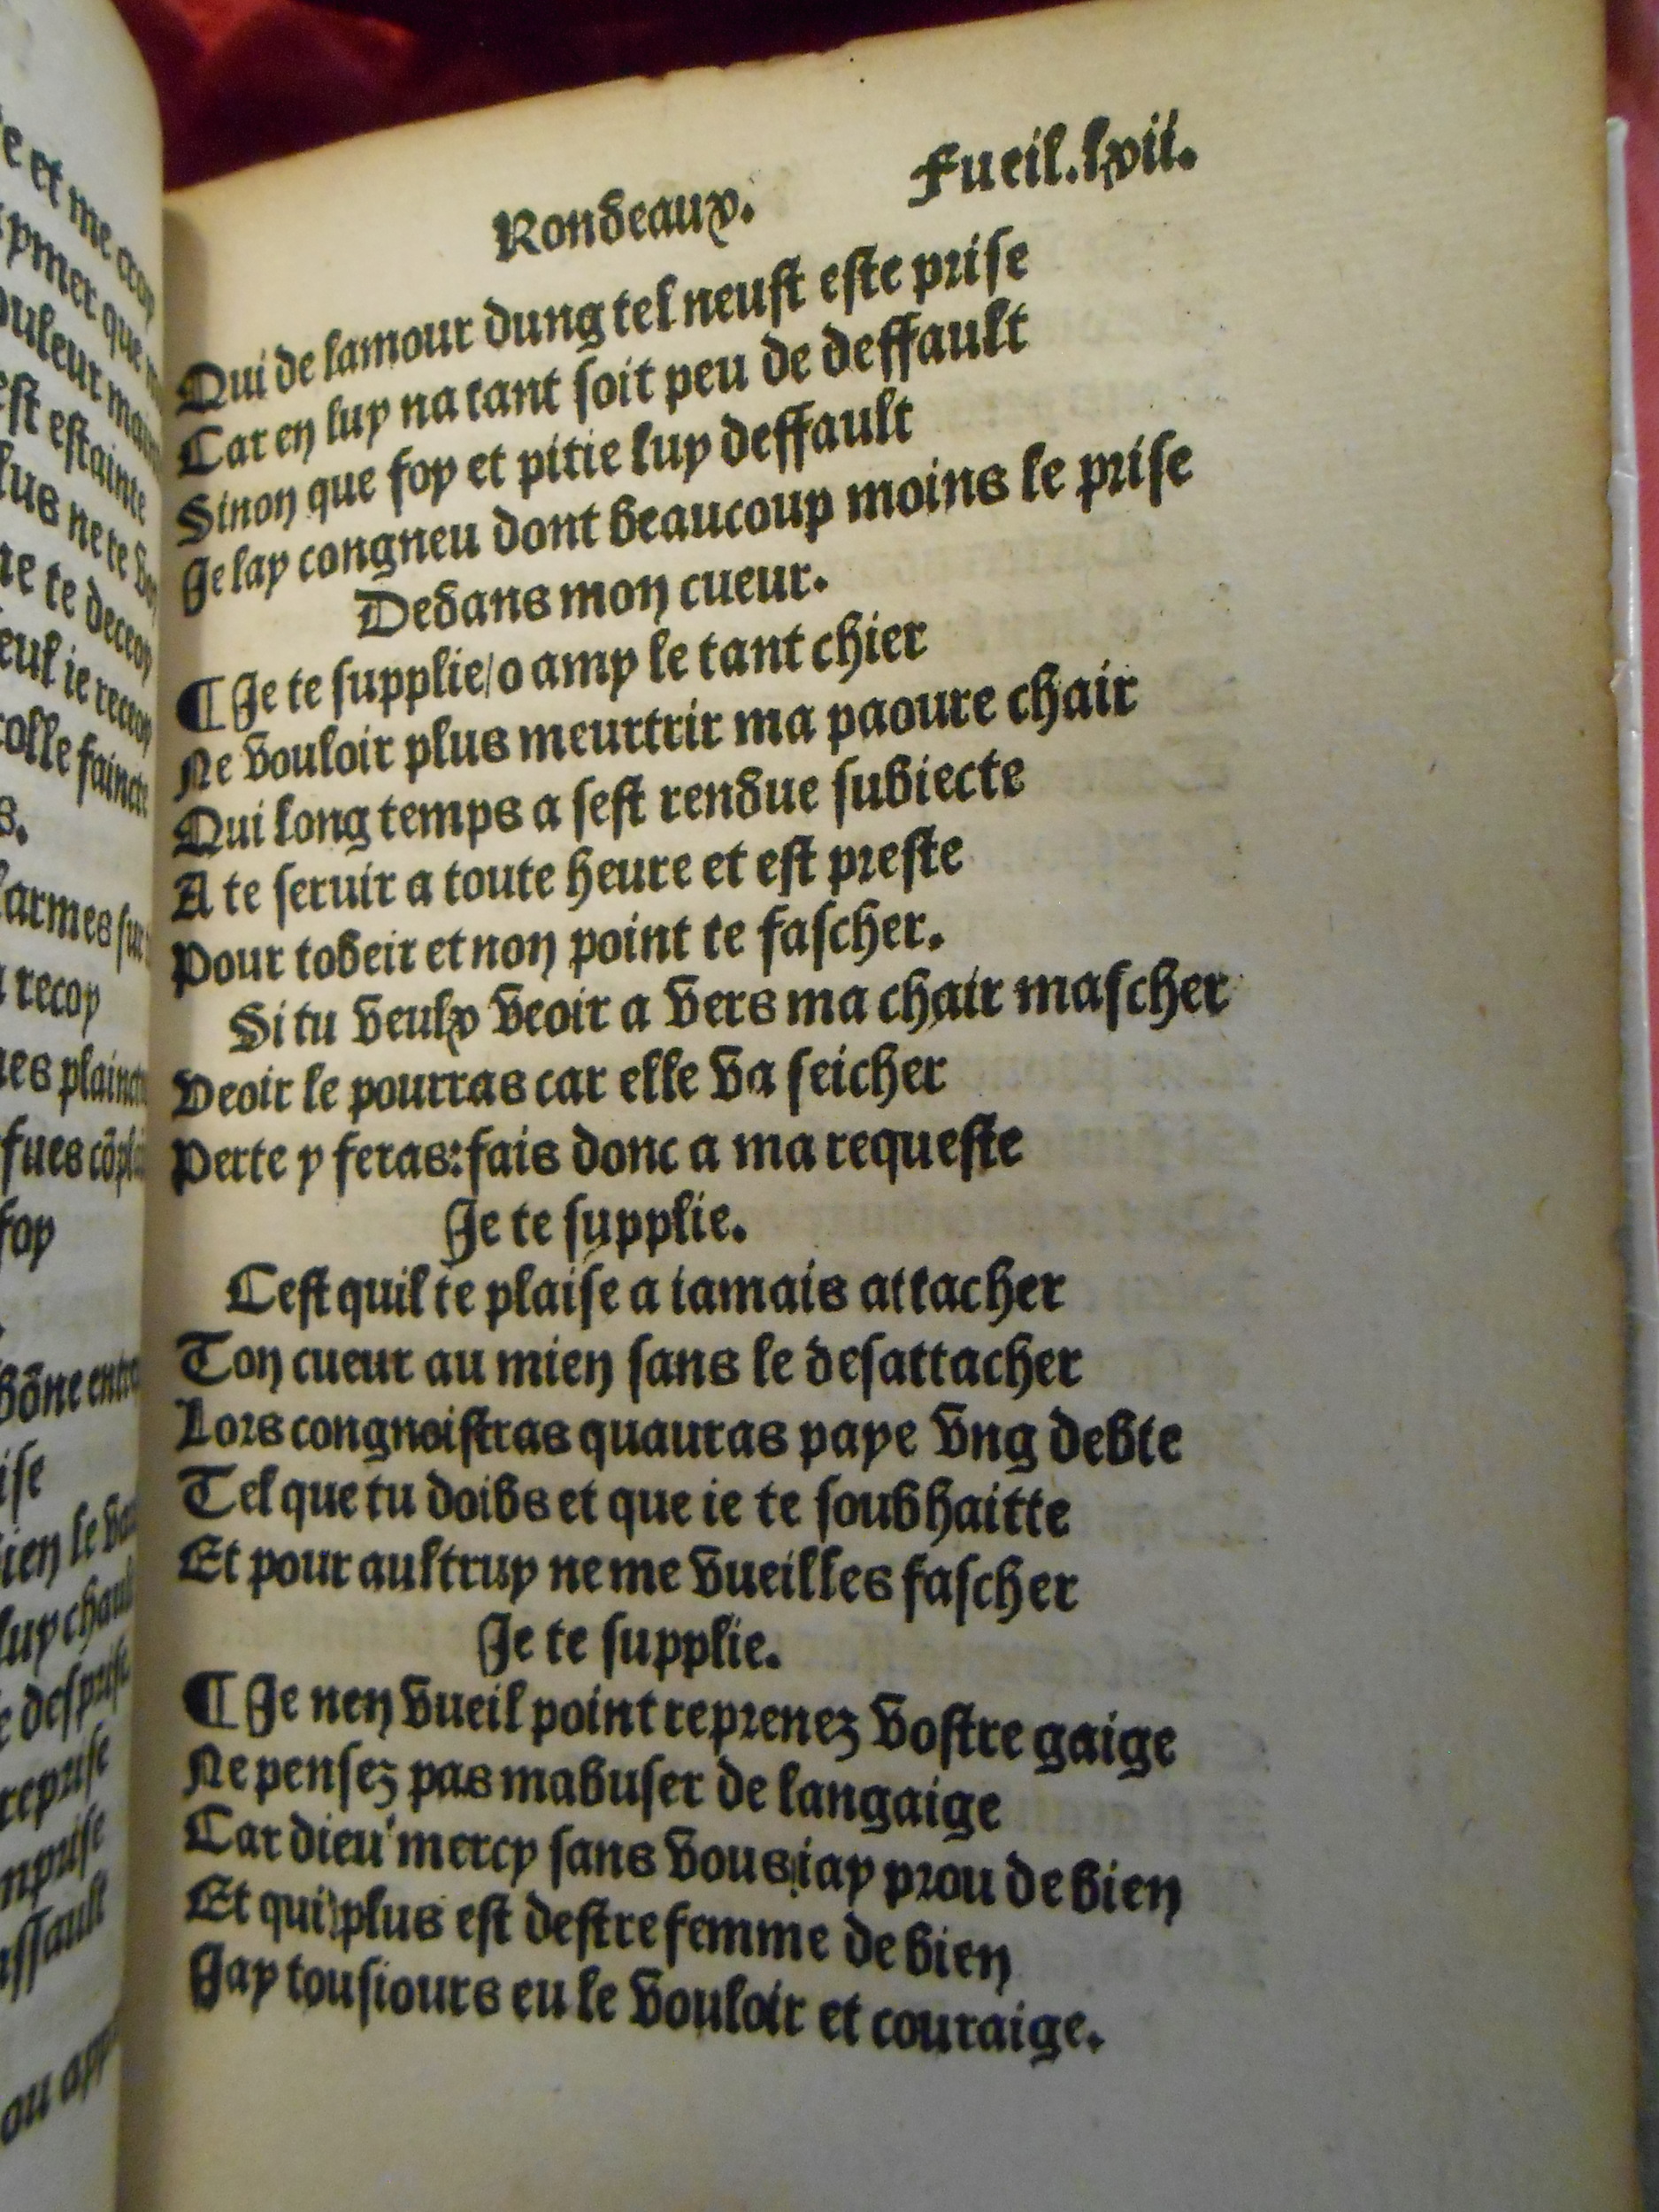 e et me croy
pmer que m
ouleur main
est estainte
lus ne te
ne te decroy
eul ie recroy
colle faincte
s.
larmes sur
recoy
ues plainct
fues cōpl
foy
bōne entre
ise
ien le
luy chault
e desprise
reprise
nprise
assault
ou app
Rondeaux. Fueil.lvii.
Qui de lamour dung tel neust este prise
Car en luy na tant soit peu de deffault
Sinon que foy et pitie luy deffault
Je lay congneu dont beaucoup moins le prise
Dedans mon cueur.
¶ Je te supplie/o amy le tant chier
Ne vouloir plus meurtrir ma paoure chair
Qui long temps a sest rendue subiecte
A te seruir a toute heure et est preste
Pour tobeir et non point te fascher.
Si tu veulx veoir a vers ma chair mascher
Veoir le pourras car elle va seicher
Perte y feras:fais donc a ma requeste
Je te supplie.
Cest quil te plaise a iamais attacher
Ton cueur au mien sans le desattacher
Lors congnoistras quauras paye vng debte
Tel que tu doibs et que ie te soubhaitte
Et pour aultruy ne me vueilles fascher
Je te supplie.
¶ Je nen vueil point reprenez vostre gaige
Ne pensez pas mabuser de langaige
Car dieu mercy sans vous iay prou de bien
Et qui plus est destre femme de bien
Jay tousiours eu le vouloir et couraige.